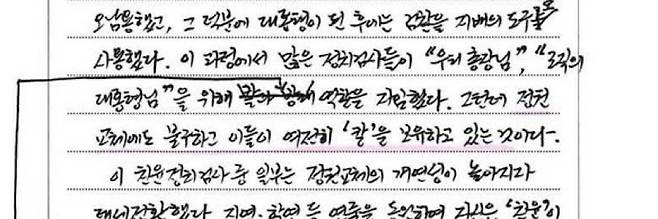 오남용했고, 그 덕분에 대통령이 된 후에는 검찰을 지배의 도구로
사용했다. 이 과정에서 많은 정치검사들이 "우리 총장님", "조직의
대통령님"을 위해 역할을 자임했다. 그런데 정권
교체에도 불구하고 이들이 여전히 '칼'을 보유하고 있는 것이다.
이 친윤정치검사 중 일부는 정권교체의 개연성이 높아지자
태세전환했다. 지연·학연 등 연줄을 동원하여 자신은 '친윤'이